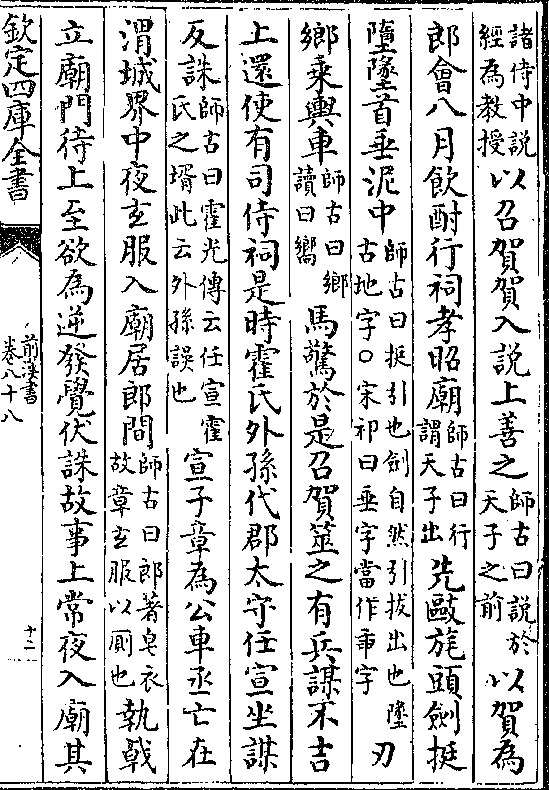 諸侍中說
經為教授
以召賀賀入說上善之
師古曰說於
天子之前
以賀為
郎會八月飲酎行祠孝昭廟
師古曰行
謂天子出
先敺旄頭劍挺
墮墜首垂泥中
師古曰挺引也劍自然引拔出也墜
古地字○宋祁曰垂字當作𠂹字
刃
鄉乗輿車
師古曰鄉
讀曰嚮
馬驚於是召賀筮之有兵謀不吉
上還使有司侍祠是時霍氏外孫代郡太守任宣坐謀
反誅
師古曰霍光傳云任宣霍
氏之壻此云外孫誤也
宣子章為公車丞亡在
渭城界中夜𤣥服入廟居郎間
師古曰郎著皂衣
故章𤣥服以厠也
執㦸
立廟門待上至欲為逆發覺伏誅故事上常夜入廟其
欽定四庫全書
前漢書
卷八十八
十二